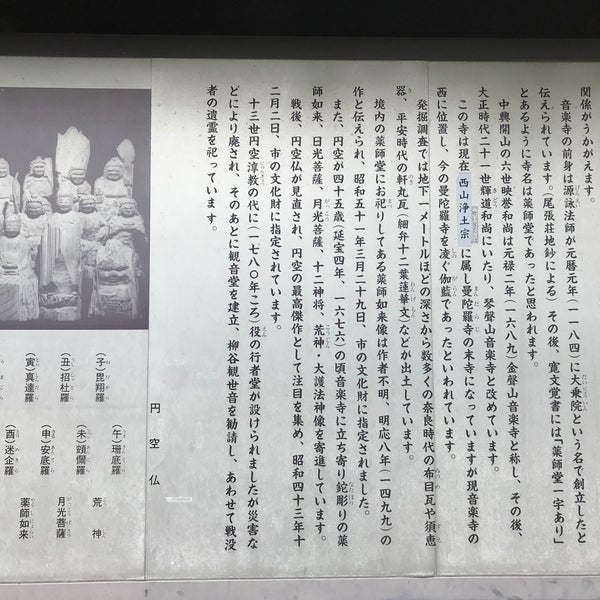 関係がうかがえます。
音楽寺の前身は源詠法師が元暦元年(一一八四)に大乗院という名で創立したと
伝えられています。(尾張荘地鈔による)その後、寛文覚書には「薬師堂一字あり」
とあるように寺名は薬師堂であったと思われます。
中興開山の六世映誉和尚は元禄二年(一六八九)金聲山音楽寺と称し、その後、
大正時代二十一世輝道和尚にいたり、琴聲山音楽寺と改めています。
この寺は現在西山浄土宗に属し曼陀羅寺の末寺になっていますが現音楽寺の
西に位置し、今の曼陀羅寺を凌ぐ伽藍であったといわれています。
発掘調査では地下一メートルほどの深さから数多くの奈良時代の布目瓦や須恵
器、平安時代の軒丸瓦(細弁十二葉蓮華文)などが出土しています。
境内の薬師堂にお祀りしてある薬師如来像は作者不明、明応八年(一四九九)の
作と伝えられ、昭和五十一年三月二十九日、市の文化財に指定されました。
また、円空が四十五歳(延宝四年、一六七六)の頃音楽寺に立ち寄り鉈彫りの薬
師如来、日光菩薩、月光菩薩、十二神将、荒神・大護法神像を寄進しています。
戦後、円空仏が見直され、円空の最高傑作として注目を集め、昭和四十三年十
二月二日、市の文化財に指定されています。
十三世円空淳教の代に(一七八〇年ころ)役の行者堂が設けられましたが災害な
どにより廃され、そのあとに観音堂を建立、柳谷観世音を勧請し、あわせて戦没
者の遺霊を祀っています。
円空仏
(子)毘羯羅
(丑)招杜羅
(寅)真達羅
(午)珊底羅
(未)頞儞羅
(申)安底羅
(酉)迷企羅
荒神
月光菩薩
薬師如来